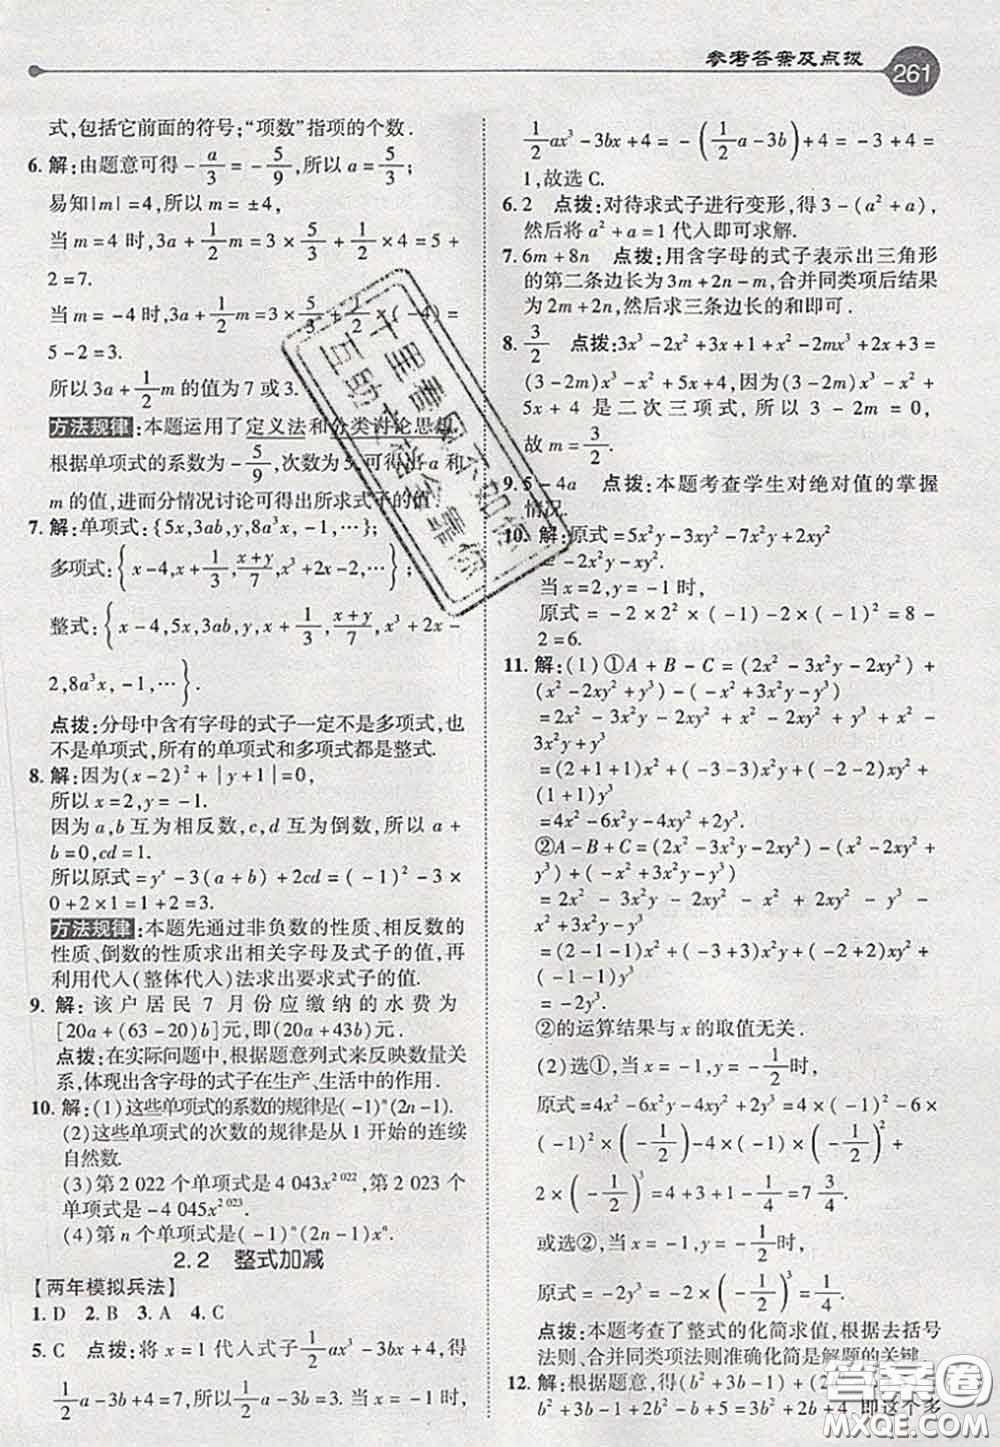 参考答案及点拨
261
式,包括它前面的符号;“项数”指项的个数.
6. 解:由题意可得 -a/3 = -5/9,所以 a = 5/3;
易知|m| = 4,所以 m = ±4,
当 m = 4 时,3a + 1/2 m = 3 × 5/3 + 1/2 × 4 = 5 +
2 = 7.
当 m = -4 时,3a + 1/2 m = 3 × 5/3
5 - 2 = 3.
所以 3a + 1/2 m 的值为 7 或 3.
方法规律:本题运用了定义法和分类讨论思想.
根据单项式的系数为 -5/9,次数为 5,可得出 a 和
m 的值,进而分情况讨论可得出所求式子的值.
7. 解:单项式:{5x,3ab,y,8a³x,-1,…};
多项式:{x-4,x+1/3,(x+y)/7,x²+2x-2,…};
整式:{x-4,5x,3ab,y,x+1/3,(x+y)/7,x²+2x-
2,8a³x,-1,…}.
点拨:分母中含有字母的式子一定不是多项式,也
不是单项式,所有的单项式和多项式都是整式.
8. 解:因为(x-2)² + |y+1| = 0,
所以 x = 2,y = -1.
因为 a,b 互为相反数,c,d 互为倒数,所以 a +
b = 0,cd = 1.
所以原式 = yˣ - 3(a+b) + 2cd = (-1)² - 3 ×
0 + 2 × 1 = 1 + 2 = 3.
方法规律:本题先通过非负数的性质、相反数的
性质、倒数的性质求出相关字母及式子的值,再
利用代入(整体代入)法求出要求式子的值.
9. 解:该户居民 7 月份应缴纳的水费为
[20a + (63-20)b]元,即(20a+43b)元.
点拨:在实际问题中,根据题意列式来反映数量关
系,体现出含字母的式子在生产、生活中的作用.
10. 解:(1)这些单项式的系数的规律是(-1)ⁿ(2n-1).
(2)这些单项式的次数的规律是从 1 开始的连续
自然数.
(3)第 2 022 个单项式是 4 043x²⁰²²,第 2 023 个
单项式是 -4 045x²⁰²³.
(4)第 n 个单项式是(-1)ⁿ(2n-1)xⁿ.
2.2 整式加减
【两年模拟兵法】
1. D 2. B 3. A 4. C
5. C 点拨:将 x = 1 代入式子 1/2 ax³ - 3bx + 4,得
1/2 a - 3b + 4 = 7,所以 1/2 a - 3b = 3.当 x = -1 时,
1/2 ax³ - 3bx + 4 = -(1/2 a - 3b) + 4 = -3 + 4 =
1,故选 C.
6. 2 点拨:对待求式子进行变形,得 3 - (a² + a),
然后将 a² + a = 1 代入即可求解.
7. 6m + 8n 点拨:用含字母的式子表示出三角形
的第二条边长为 3m + 2n - m,合并同类项后结果
为 2m + 2n,然后求三条边长的和即可.
8. 3/2 点拨:3x³ - 2x² + 3x + 1 + x² - 2mx³ + 2x + 3 =
(3-2m)x³ - x² + 5x + 4,因为(3-2m)x³ - x² +
5x + 4 是二次三项式,所以 3 - 2m = 0,
故 m = 3/2.
9. 5 - 4a 点拨:本题考查学生对绝对值的掌握
情况.
10. 解:原式 = 5x²y - 3xy² - 7x²y + 2xy²
= -2x²y - xy².
当 x = 2,y = -1 时,
原式 = -2 × 2² × (-1) - 2 × (-1)² = 8 -
2 = 6.
11. 解:(1)①A + B - C = (2x² - 3x²y - 2xy²) +
(x² - 2xy² + y³) - (-x² + 3x²y - y³)
= 2x² - 3x²y - 2xy² + x² - 2xy² + y³ + x² -
3x²y + y³
= (2+1+1)x² + (-3-3)x²y + (-2-2)xy² +
(1+1)y³
= 4x² - 6x²y - 4xy² + 2y³.
②A - B + C = (2x² - 3x²y - 2xy²) - (x² - 2xy² +
y³) + (-x² + 3x²y - y³)
= 2x² - 3x²y - 2xy² - x² + 2xy² - y³ - x² +
3x²y - y³
= (2-1-1)x² + (-3+3)x²y + (-2+2)xy² +
(-1-1)y³
= -2y³.
②的运算结果与 x 的取值无关.
(2)选①,当 x = -1,y = -1/2 时,
原式 = 4x² - 6x²y - 4xy² + 2y³ = 4 × (-1)² - 6 ×
(-1)² × (-1/2) - 4 × (-1) × (-1/2)² +
2 × (-1/2)³ = 4 + 3 + 1 - 1/4 = 7 3/4.
或选②,当 x = -1,y = -1/2 时,
原式 = -2y³ = -2 × (-1/2)³ = 1/4.
点拨:本题考查了整式的化简求值,根据去括号
法则、合并同类项法则准确化简是解题的关键.
12. 解:根据题意,得(b² + 3b - 1) +
b² + 3b - 1 + 2b² + 2b + 4,即这个多
十里春风不如你
互助
全靠你
答案圈
MXQE.COM